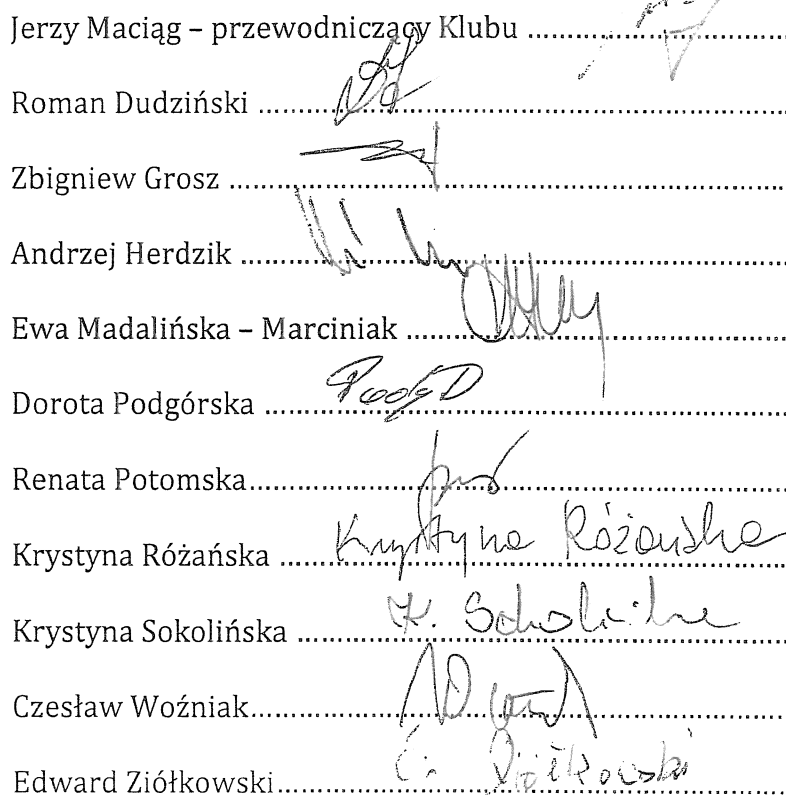 Jerzy Maciąg – przewodniczący Klubu ........................
Roman Dudziński ........................
Zbigniew Grosz ........................
Andrzej Herdzik ........................
Ewa Madalińska – Marciniak ........................
Dorota Podgórska ........................
Renata Potomska........................
Krystyna Różańska ........................ Krystyna Różańska
Krystyna Sokolińska ........................ K.
Czesław Woźniak........................
Edward Ziółkowski........................ Ziółkowski